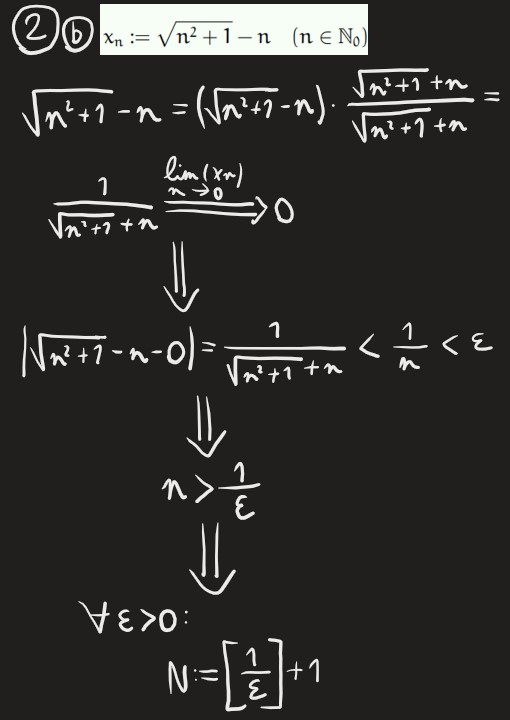 ② ⓑ xₙ := √(n² + 1) − n (n ∈ ℕ₀)
√(n²+1) - n = (√(n²+1) - n) · (√(n²+1) + n)/(√(n²+1) + n) =
1/(√(n²+1) + n) lim(xn) n→0 ⇒ 0
⇓
|√(n²+1) - n - 0| = 1/(√(n²+1) + n) < 1/n < ε
⇓
n > 1/ε
⇓
∀ ε > 0:
N := [1/ε] + 1